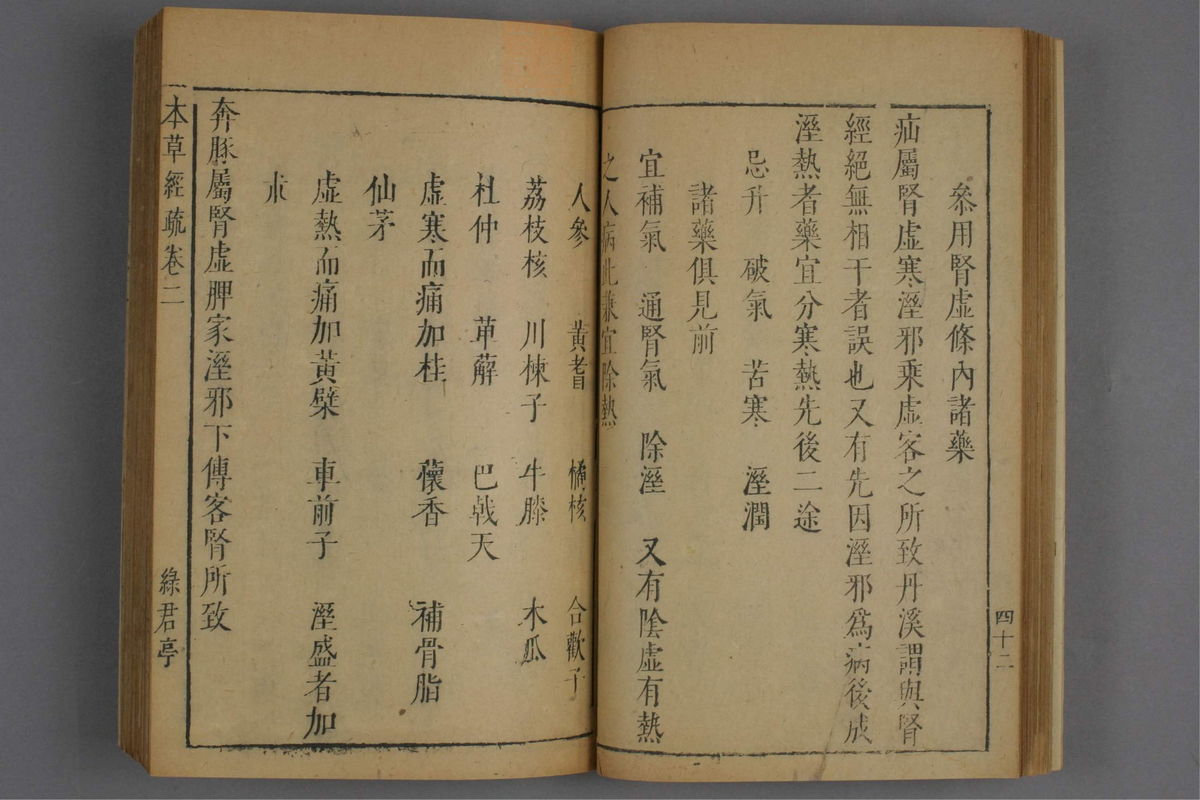 四十二
參用腎虛條內諸藥
疝屬腎虛寒溼邪乘虛客之所致丹溪謂與腎
經絕無相干者誤也又有先因溼邪爲病後成
溼熱者藥宜分寒熱先後二途
忌升 破氣 苦寒 溼潤
諸藥俱見前
宜補氣 通腎氣 除溼 又有陰虛有熱
之人病此兼宜除熱
人參 黃耆 橘核 合歡子
荔枝核 川楝子 牛膝 木瓜
杜仲 萆薢 巴戟天
虛寒而痛加桂 蘹香 補骨脂
仙茅
虛熱而痛加黃檗 車前子 溼盛者加
朮
奔豚屬腎虛脾家溼邪下傳客腎所致
本草經疏卷二 綠君亭